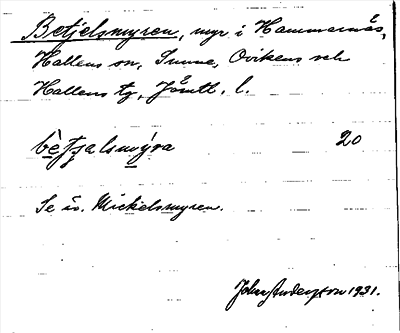 Betjelsmyren, myr i Hammarnäs,
Hallens sn, Sunne, Ovikens och
Hallens tg, Jämtl. l.
bèt̯ʒalsmýra 20
Se äv. Mickelsmyren.
John Anderzon 1931.